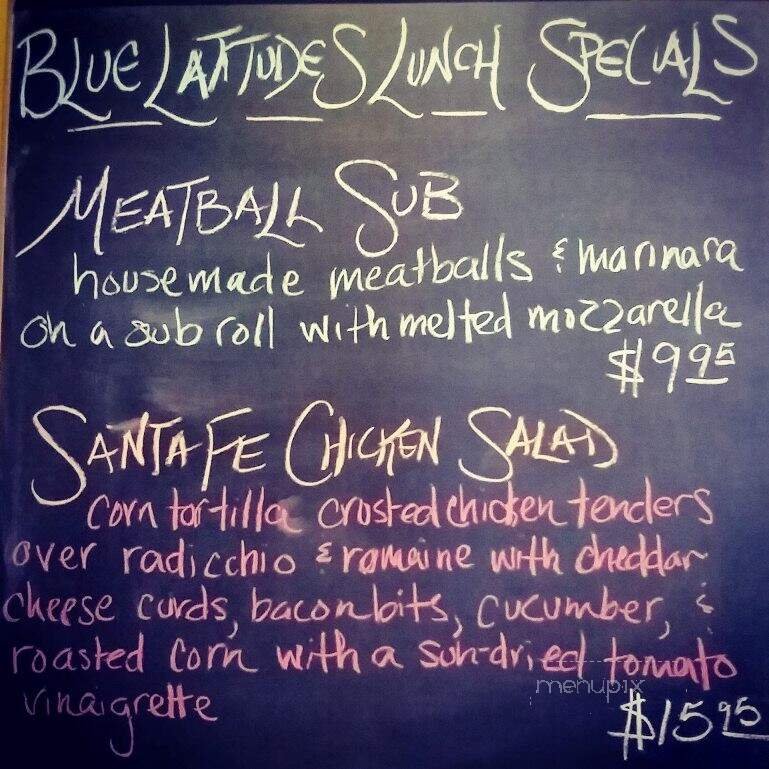 BLUE LATITUDES LUNCH SPECIALS
MEATBALL SUB
housemade meatballs & marinara
on a sub roll with melted mozzarella
$9.95
SANTA FE CHICKEN SALAD
corn tortilla crusted chicken tenders
over radicchio & romaine with cheddar
cheese curds, bacon bits, cucumber, &
roasted corn with a sun-dried tomato
menupix
vinaigrette
$15.95